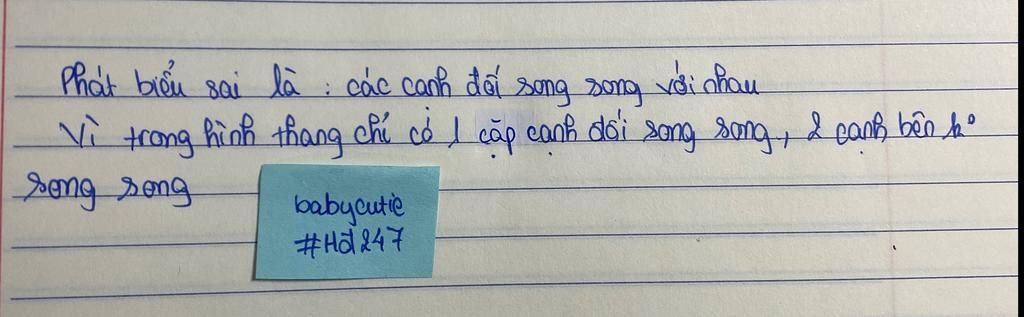 Phát biểu sai là : các cạnh đối song song với nhau
Vì trong hình thang chỉ có 1 cặp cạnh đối song song, 2 cạnh bên ko
song song
babycutie
#Hd247